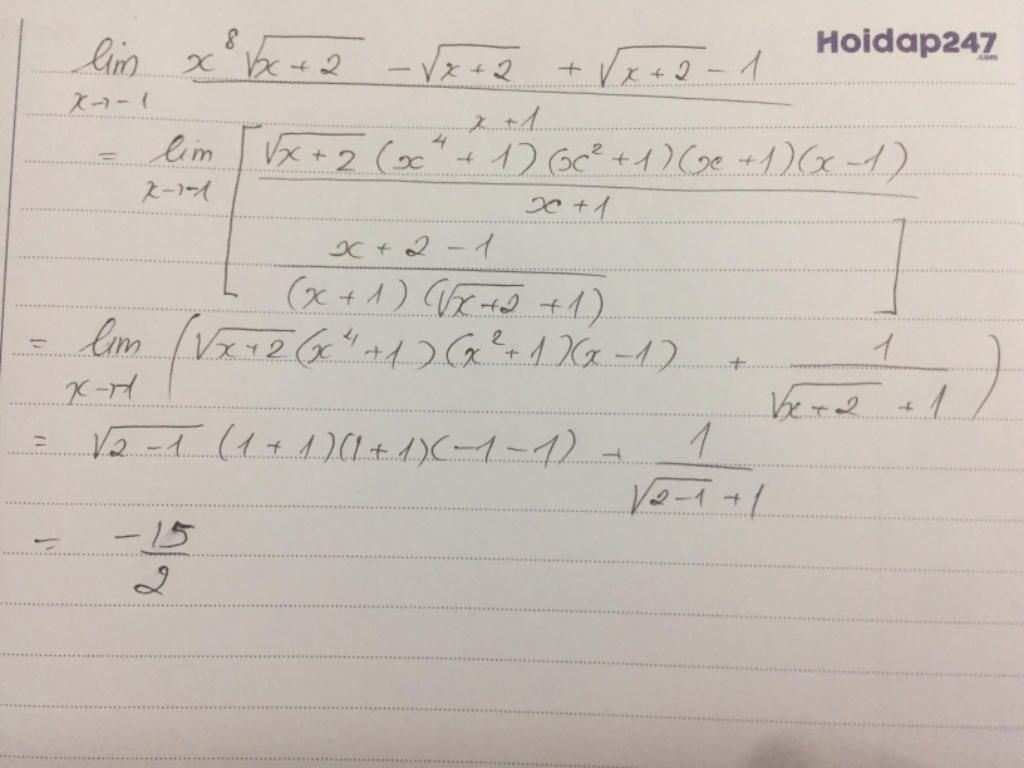 Hoidap247
.com
lim x→-1 (x⁸√(x+2) - √(x+2) + √(x+2) - 1) / (x+1)
= lim x→-1 [ (√(x+2) (x⁴+1) (x²+1) (x+1) (x-1)) / (x+1)
(x+2-1) / ((x+1) (√(x+2) + 1)) ]
= lim x→-1 ( √(x+2) (x⁴+1) (x²+1) (x-1) + 1 / (√(x+2) + 1) )
= √(2-1) (1+1)(1+1)(-1-1) + 1 / (√(2-1) + 1)
= -15 / 2